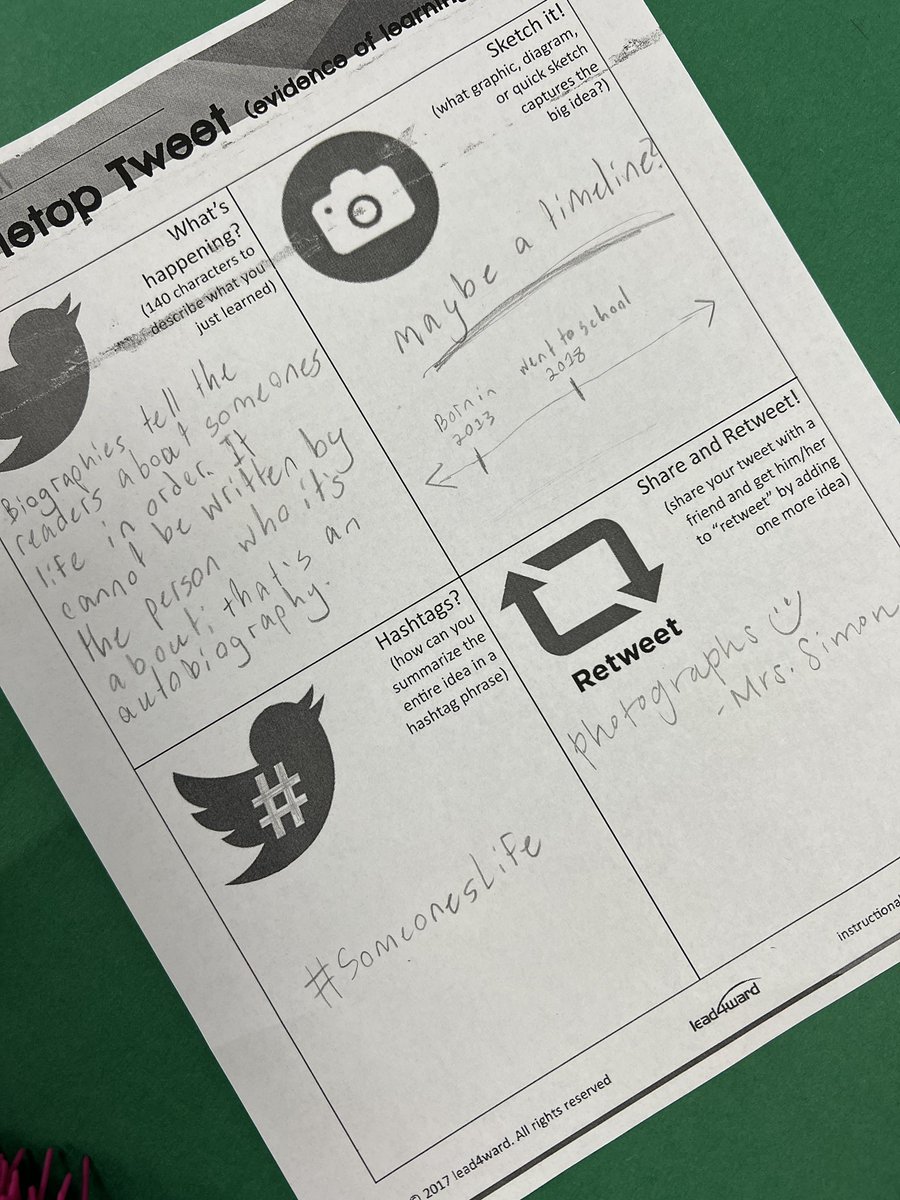 Tweet (evidence of learning
What's
happening?
(140 characters to
describe what you
just learned)
Biographies tell the
readers about someones
life in order. It
cannot be written by
the person who it's
about; that's an
autobiography.
Sketch it!
(what graphic, diagram,
or quick sketch
captures the
big idea?)
maybe a timeline?
Born in
2013
went to school
2018
Hashtags?
(how can you
summarize the
entire idea in a
hashtag phrase)
#
#SomeonesLife
Share and Retweet!
(share your tweet with a
friend and get him/her
to "retweet" by adding
one more idea)
Retweet
photographs
- Mrs. Simon
lead4ward
© 2017 lead4ward. All rights reserved
instructional